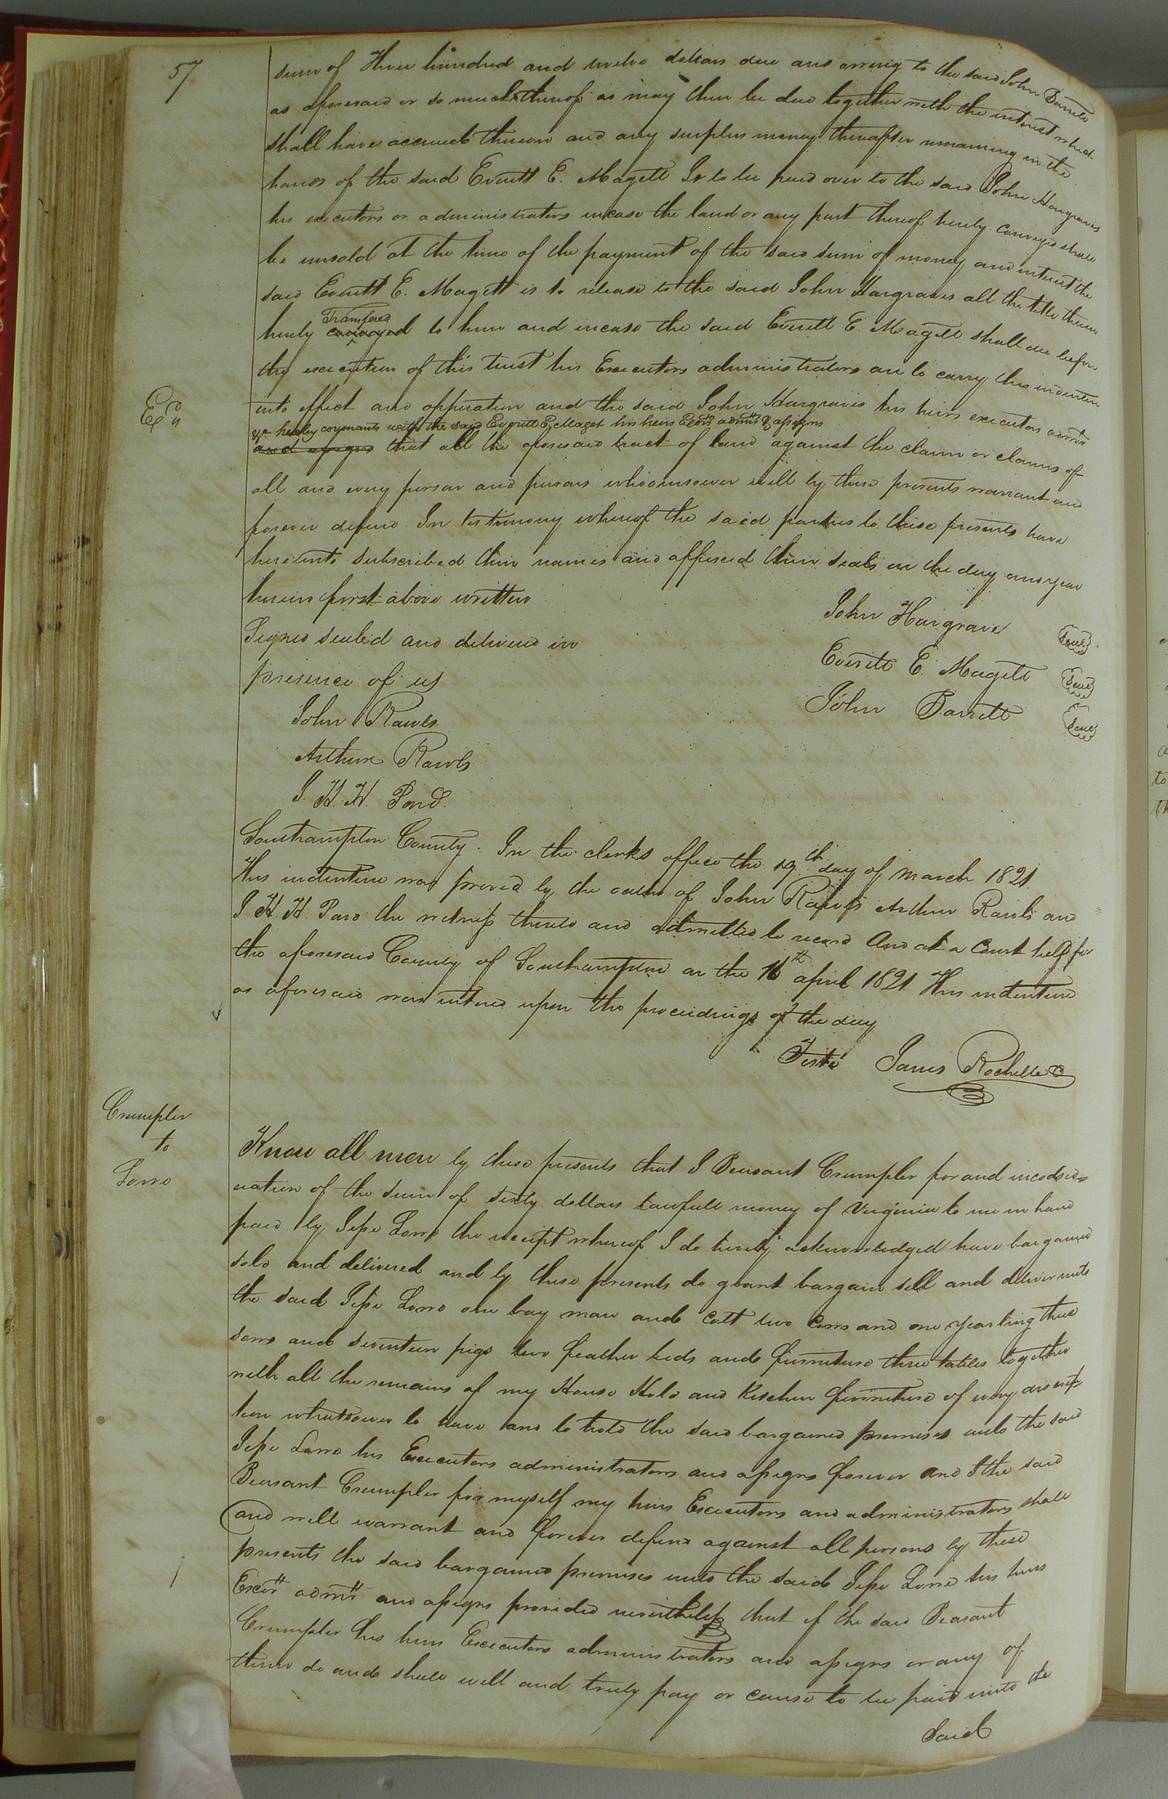 57
sum of Three hundred and twelve dollars due and owing to the said John Barrett
as aforesaid or so much thereof as may then be due together with the interest which
shall have accrued thereon and any surplus money thereafter remaining in the
hands of the said Everett E. Magett Is to be paid over to the said John Hargraves
his executors or administrators incase the land or any part thereof hereby conveyed shall
be unsold at the time of the payment of the said sum of money and interest the
said Everett E. Magett is to release to the said John Hargraves all the title therein
Transfered
hereby conveyed to him and incase the said Everett E Magett shall die before
the execution of this trust his Executors administrators are to carry this indenture
into effect and opperation and the said John Hargraves his heirs executors admrs
Exd
&c hereby covenants with the said Everett E Maget his heirs Exors admrs & assigns
and assigns that all the aforesaid tract of land against the claim or claims of
all and every person and persons whomsoever will by these presents warrant and
forever defend In testimony whereof the said parties to these presents have
hereunto subscribed their names and affixed their seals on the day and year
herein first above written
John Hargrave Seal
Signed sealed and delivered in
Everett E. Magett Seal
presence of us
John Barrett Seal
John Rawls
Arthur Rawls
J. H. H. Pond.
Southampton County. In the clerks office the 19th day of March 1821
This indenture was proved by the oaths of John Rawls Arthur Rawls and
J H H Pond the witness thereto and admitted to record And at a Court held for
the aforesaid County of Southampton on the 16th april 1821 This indenture
as aforesaid was entered upon the proceedings of the day
Teste James Rochelle C
Crumpler
to
Know all men by these presents that I Beasant Crumpler for and inconside
ration of the sum of sixty dollars lawfull money of Virginia to me in hand
paid by Jesse the receipt whereof I do hereby acknowledged have bargained
sold and delivered and by these presents do grant bargain sell and deliver unto
the said Jesse one bay mare and colt two cows and one yearling three
sows and seventeen pigs two feather beds and furniture three tables together
with all the remains of my House Hold and Kitchen furniture of every descrip
tion whatsoever to have and to hold the said bargained premises unto the said
Jesse his Executors administrators and assigns forever and I the said
Beasant Crumpler for myself my heirs Executors and administrators shall
and will warrant and forever defend against all persons by these
presents the said bargained premises unto the said Jesse his heirs
Execrs admrs and assigns provided nevertheless that if the said Beasant
Crumpler his heirs Executors administrators and assigns or any of
them do and shall well and truly pay or cause to be paid unto the
Said